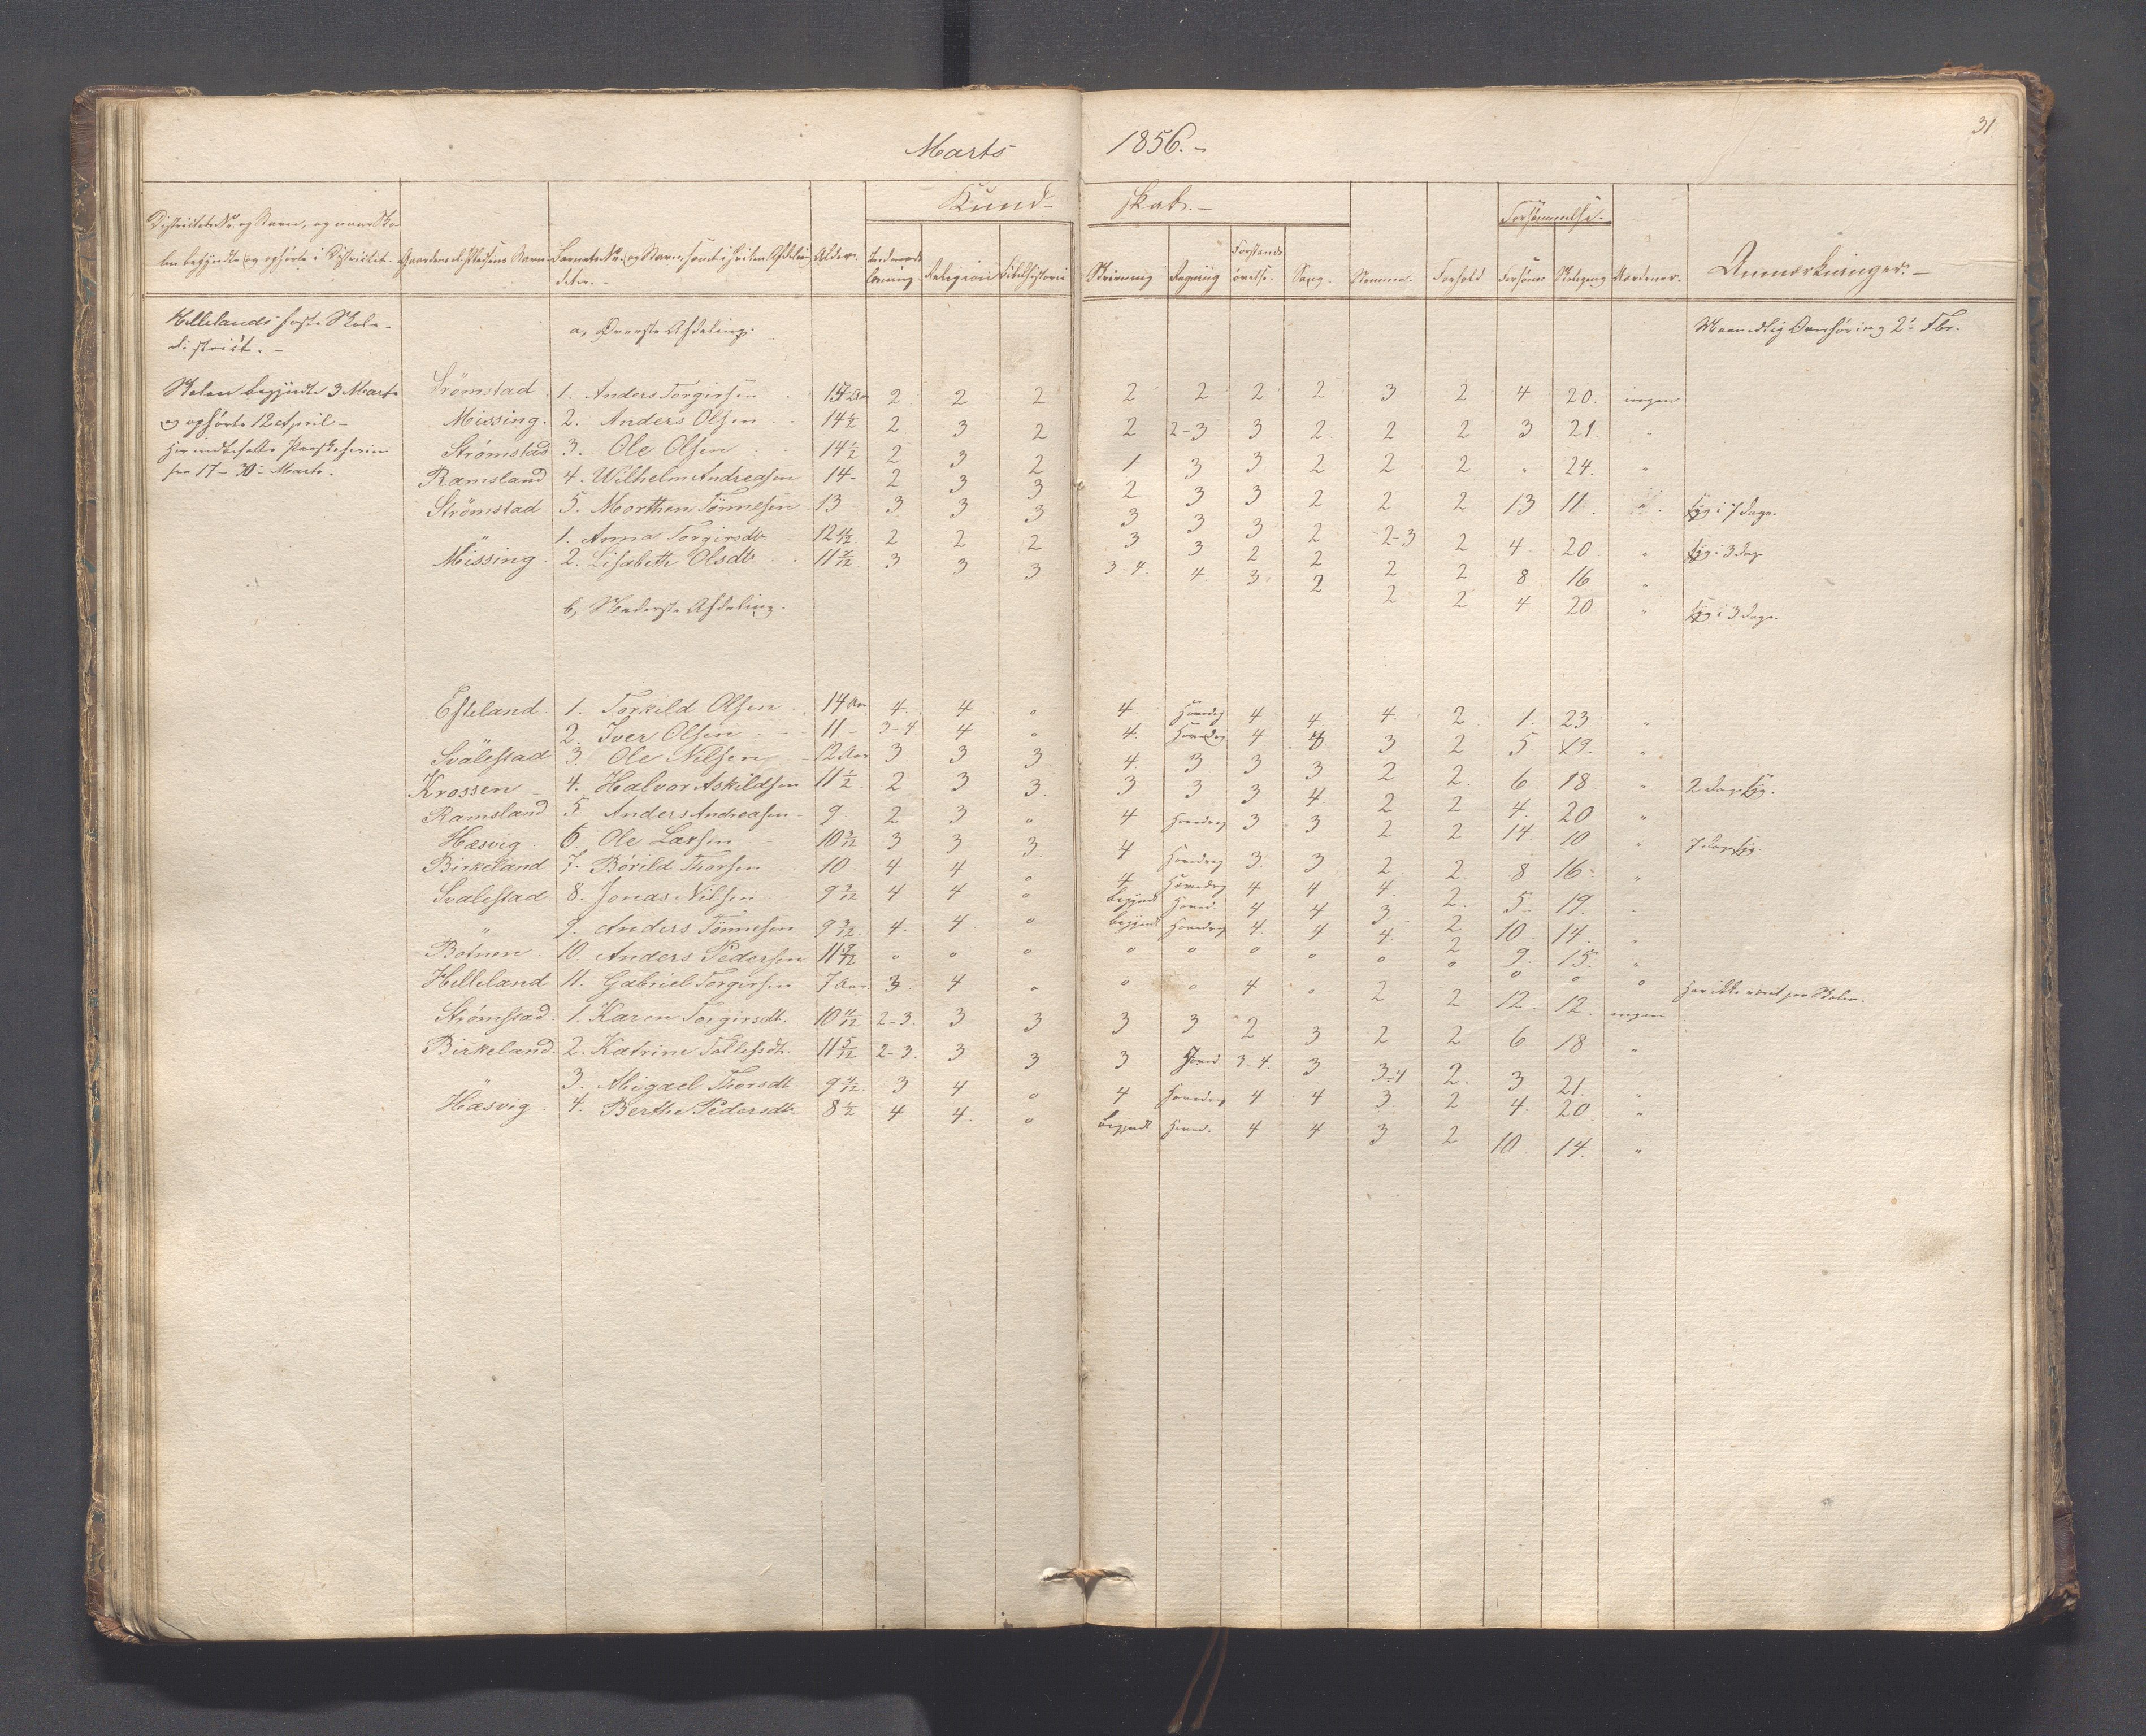 31.
Marts 1856.-
Kund- skab.-
Forsømmelse.
Districtets Nr. og Navn, og naar Sko-
len begyndte og ophørte i Districtet. Gaardens el. Pladsens Navn Barnets Nr. og Navn, samt i hvilken Afdeling Alder. Indenads Læsning Religion Bibelhistorie Skrivning Regning Forstands øvelse. Sang. Nemme. Forhold Forsømt Skolegang Anmærkninger.-
Hellelands faste Skole-
district.-
a, Øverste Afdeling. Maanedlig Overhøring 2. Fbr.
Skolen begyndte 3 Marts
og ophørte 12 April-
heri indbefattet Paaskeferien
fra 17-30- Marts.
Strömstad 1. Anders Torgirsen 15 Aar 2 2 2 2 2 2 2 3 2 4 20. ingen
Missing. 2. Anders Olsen 14 1/2 2 3 2 2 2-3 3 2. 2 2 3 21. "
Strömstad 3. Ole Olsen 14 1/2 2 3 2 1 3 3 2 2 2 " 24. "
Ramsland 4. Wilhelm Andreasen 14- 2 3 3 2 3 3 2 2 2 13 11 " syg i 7 dage.
Strömstad 5. Morthen Tönnesen 13- 3 3 3 3 3 3 2 2-3 2 4 20 " syg i 3 dag
" 1. Anna Torgirsdtr. 12 2 2 2 3 3 2 2 2 2 8 16 "
Missing. 2. Lisabeth Olsdtr. 11 7/12 3 3 3 3-4. 4. 3. 2 2 2 4 20 " syg i 3 dage.
b, Nederste Afdeling.
Efteland. 1. Torkild Olsen 14 Aar 4. 4 o 4. Hoved 4 4 4. 2 1. 23 "
2. Iver Olsen 11- 3-4 4 o 4. Hoved 4 4 3 2 5 19. "
Svalestad 3. Ole Nilsen 12 Aar 3 3 3 4. 3 3 3 2 2. 6 18 " 2 dage syg.
Krossen 4. Halvor Askildsen 11 1/2 2 3 3. 3 3 3 4. 2 2 4. 20 "
Ramsland 5 Anders Andreasen 9 2 3 " 4 Hoved 3 3 2 2 14. 10 " 7 dage syg.
Hæsvig. 6. Ole Larsen 10 3 3 3 4 Hoved 3 3 2 2. 8 16. "
Birkeland 7. Bórild Thorsen 10. 4 4 o 4. Hoved 4 4 4. 2. 5 19. "
Svalestad 8. Jonas Nilsen 9 4 4 o begyndt Hoved. 4 4 3 2 10 14. "
" 9. Anders Tönnesen 9 4. 4. o begyndt Hoved 4. 4 4. 2 9. 15. "
Botnen. 10. Anders Pedersen 11 o o o o o o o o o o o o har ikke været paa Skolen.
Helleland 11. Gabriel Torgirsen 7 Aar 3. 4 o o o 4 o 2 2 12. 12. ingen
Strömstad. 1. Karen Torgirsdt. 10 2-3. 3 3 3 3 2 3 2 2 6 18 "
Birkeland. 2. Katrine Tollefsdt. 11 5/12 2-3. 3 3 3 Hoved 3-4. 3 3-4 2. 3 21. "
3. Abigael Thorsdt. 9 3 4 o 4 Hoved 4 4 3. 2 4. 20 "
Hæsvig. 4. Berthe Pedersdtr. 8 1/2 4 4. o begyndt Hoved. 4 4 3 2 10. 14. "